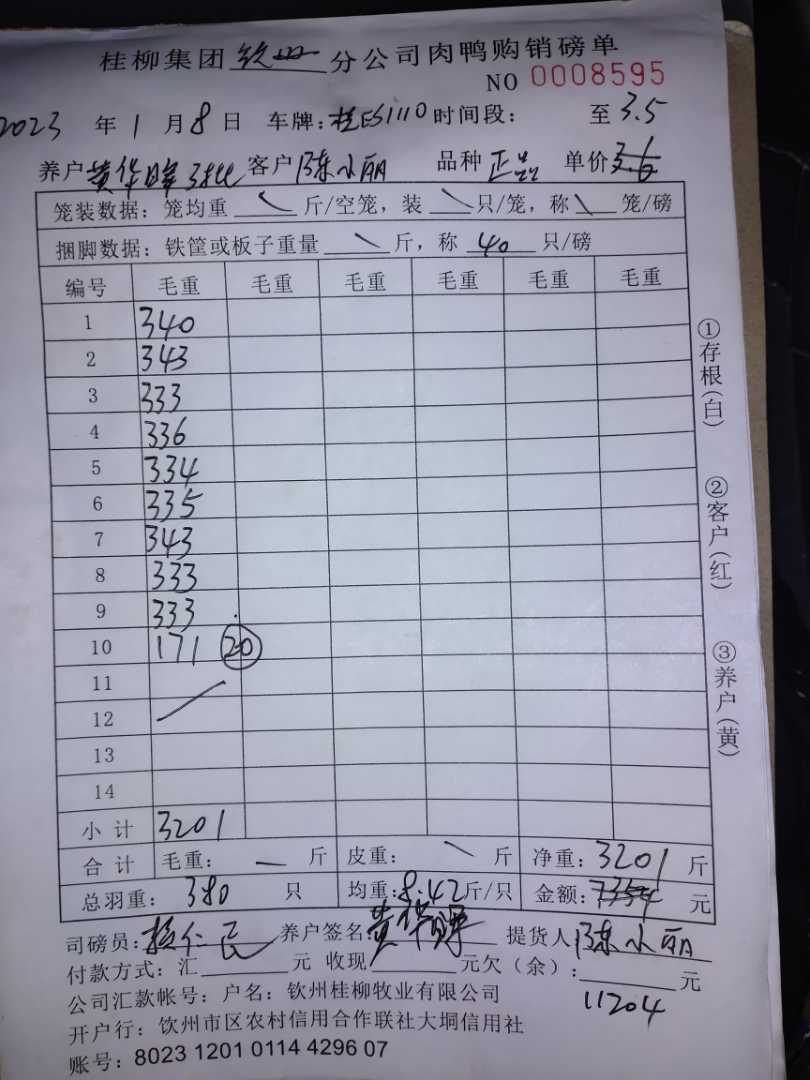 桂柳集团 钦州 分公司肉鸭购销磅单
NO 0008595
2023 年 1 月 8 日 车牌:桂ES1110 时间段: 至 3.5
养户 黄华晖 客户 陈小丽 品种 正品 单价
笼装数据: 笼均重 斤/空笼, 装 只/笼, 称 笼/磅
捆脚数据: 铁筐或板子重量 斤, 称 40 只/磅
编号 毛重 毛重 毛重 毛重 毛重 毛重
1 340
2 343
3 333
4 336
5 334
6 335
7 343
8 333
9 333
10 171 20
11
12
13
14
小计 3201
合计 毛重: 斤 皮重: 斤 净重: 3201 斤
总羽重: 380 只 均重: 8.42 斤/只 金额: 7354 元
司磅员: 养户签名 黄华晖 提货人 陈小丽
付款方式: 汇 元 收现 元欠(余): 元
11204
公司汇款帐号: 户名: 钦州桂柳牧业有限公司
开户行: 钦州市区农村信用合作联社大垌信用社
账号: 8023 1201 0114 4296 07
①存根(白)
②客户(红)
③养户(黄)